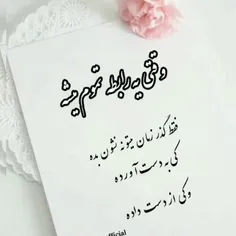 وقتی یه رابطه تموم میشه
فقط گذر زمان میتونه نشون بده
کی به دست آورده
و کی از دست داده
official